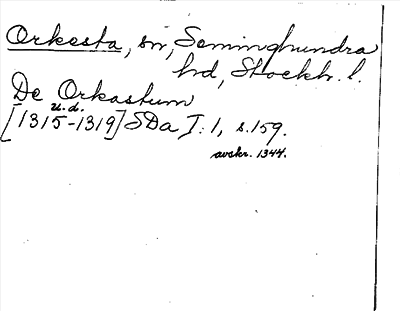 Orkesta, sn, Seminghundra
hd, Stockh. l.
De Orkastum
u.d.
[1315-1319] SDa I:1, s.159.
avskr. 1344.